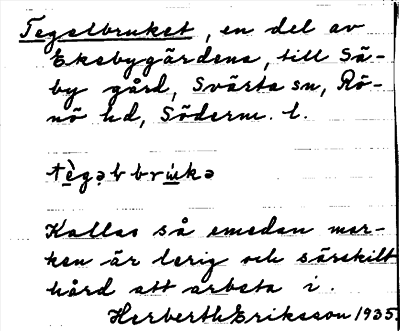 Tegelbruket, en del av
Ekebygärdena, till Sä-
by gård, Svärta sn, Rö-
nö hd, Söderm. l.
Kallas så emedan mar-
ken är lerig och särskilt
hård att arbeta i.
Herberth Eriksson 1935.